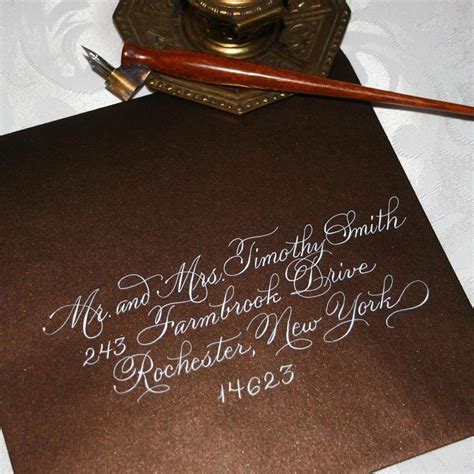 Mr. and Mrs. Timothy Smith
243 Farmbrook Drive
Rochester, New York
14623